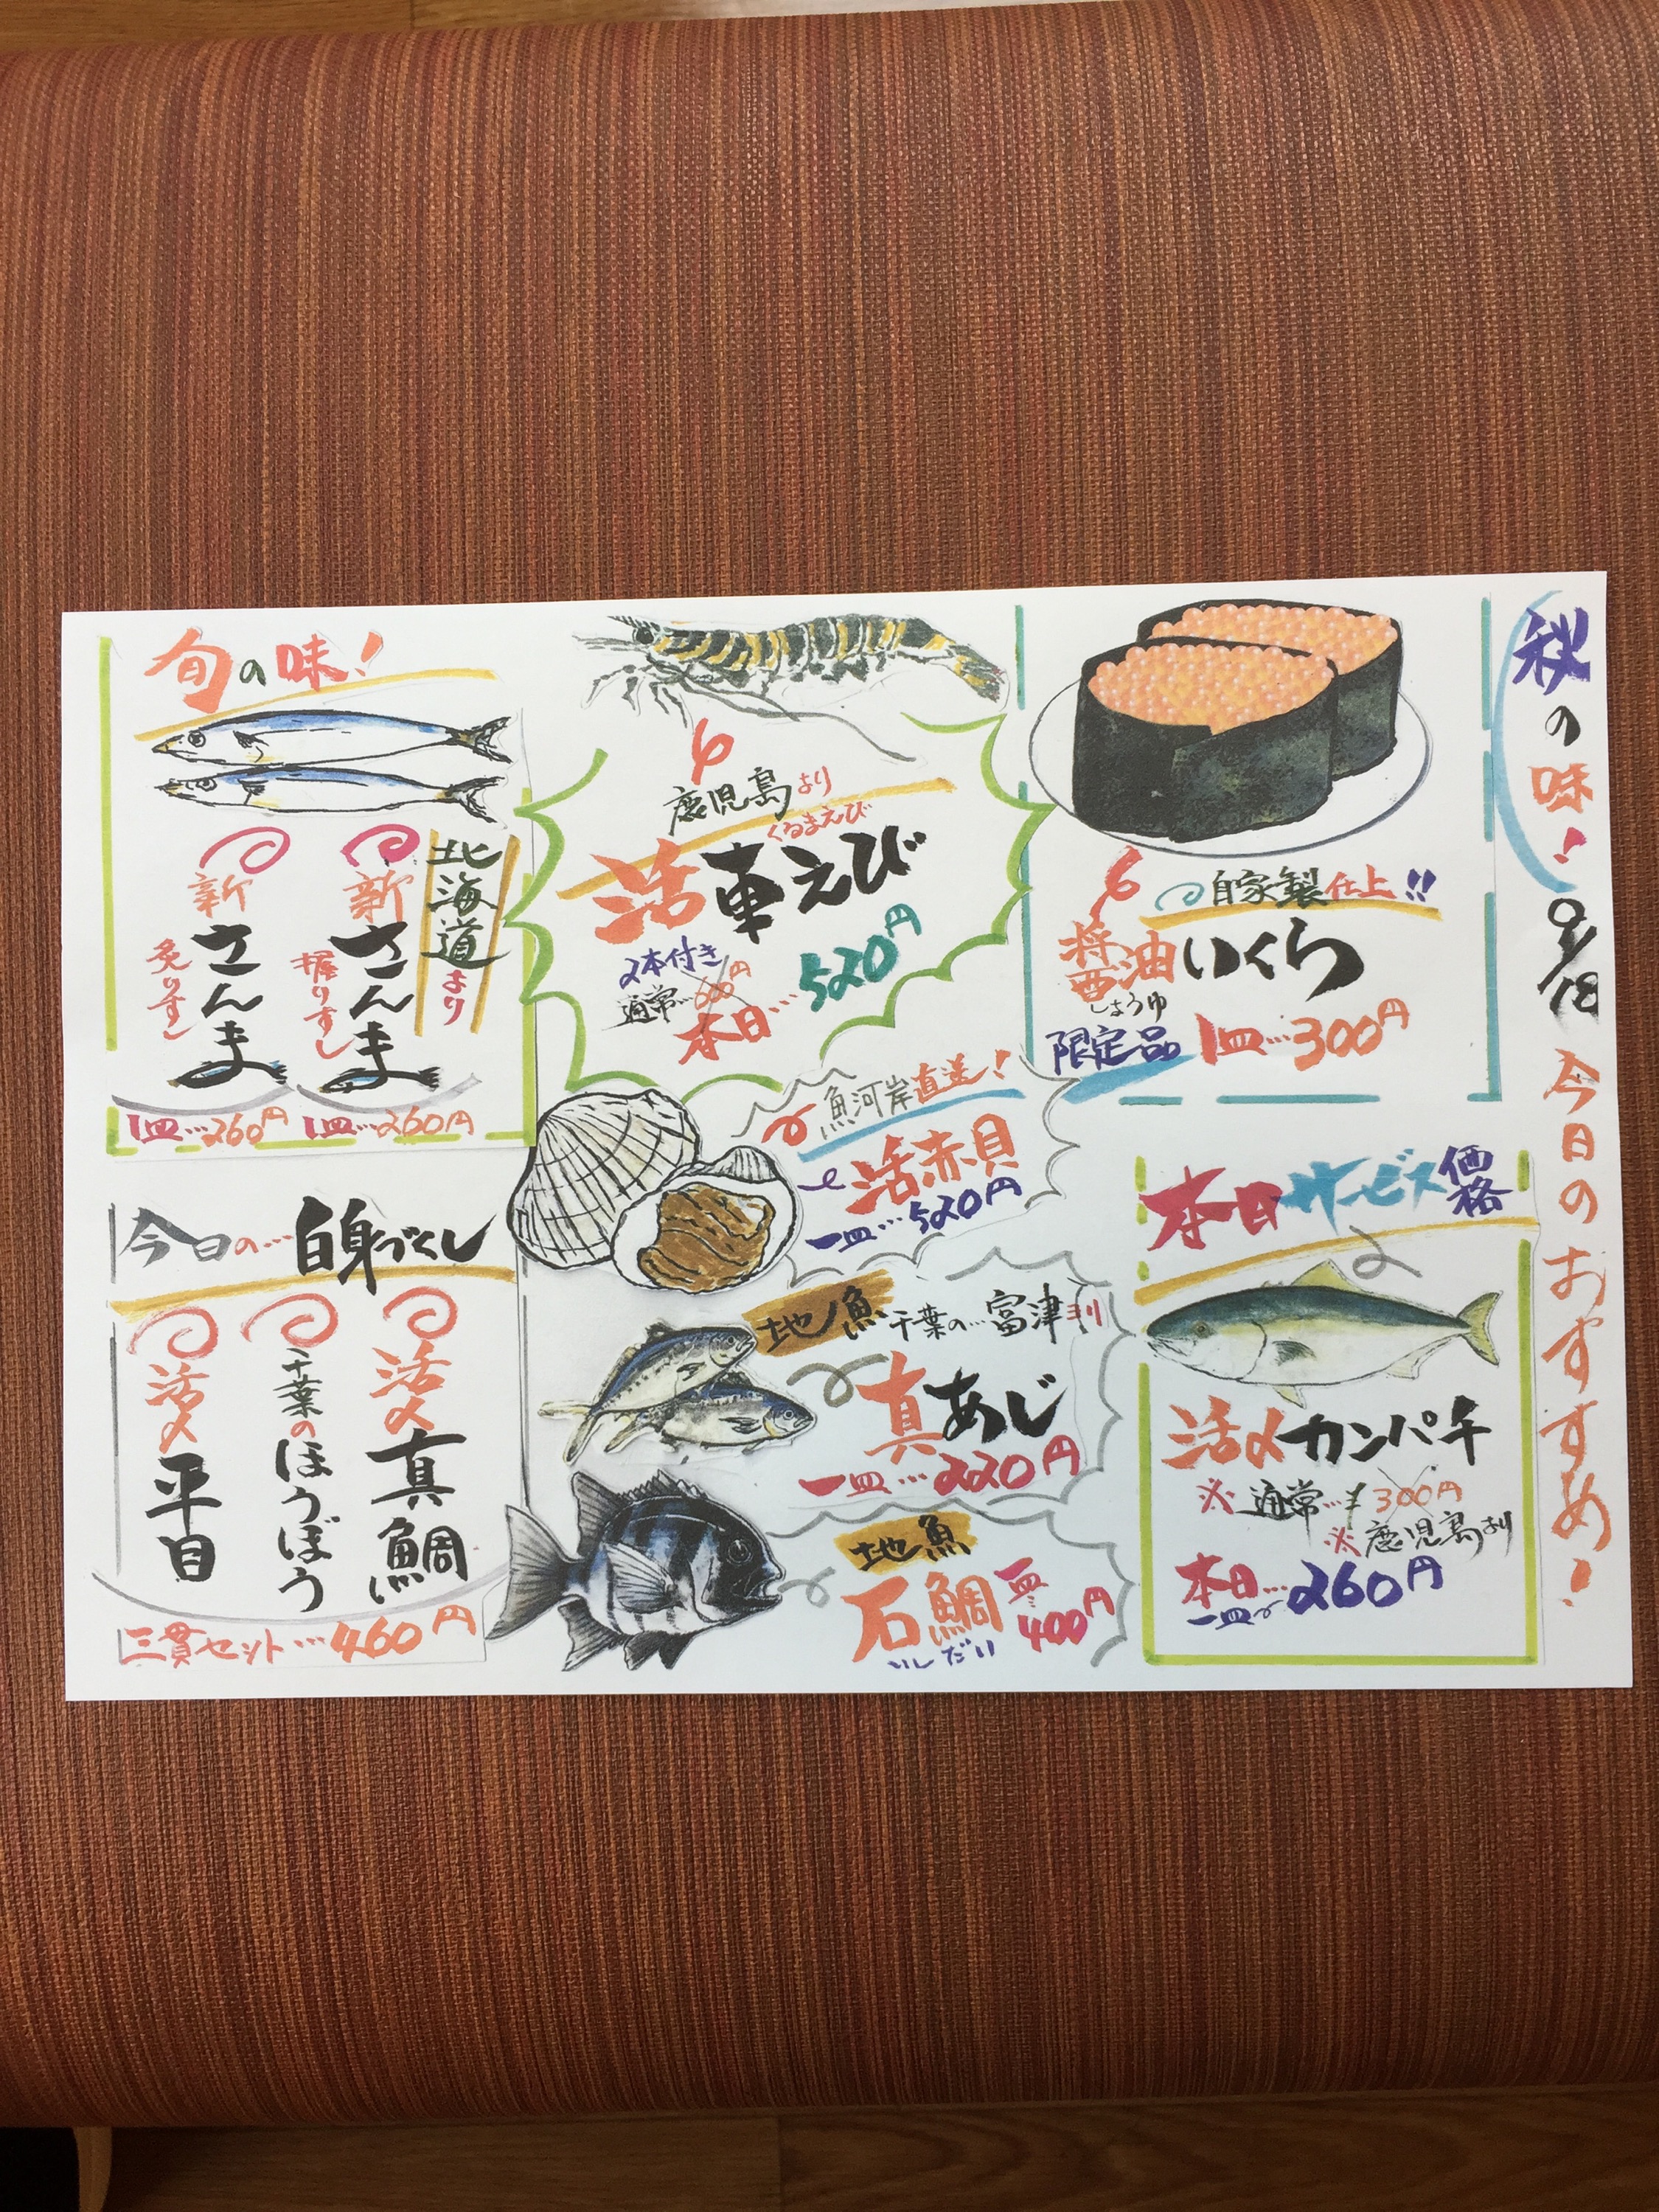 秋の味!
9/18
今日のおすすめ!
自家製仕上!!
醤油いくら
しょうゆ
限定品 1皿…300円
本日サービス価格
活〆カンパチ
※通常…¥300円
※鹿児島より
本日…
一皿〜260円
鹿児島より
くるまえび
活車えび
2本付き
通常…600円
本日…520円
魚河岸直送!
活赤貝
一皿…520円
地魚 千葉の…富津より
真あじ
一皿…220円
地魚
石鯛
いしだい
一皿…
400円
旬の味!
北海道より
新さんま
握りすし
新さんま
炙りすし
1皿…260円
1皿…260円
今日の…白身づくし
活〆真鯛
千葉のほうぼう
活〆平目
三貫セット…460円